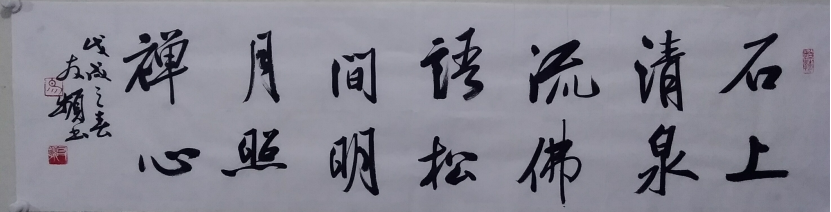 石上
清泉
流佛
語松
间明
月照
禅心
戊戌之春
友頻书